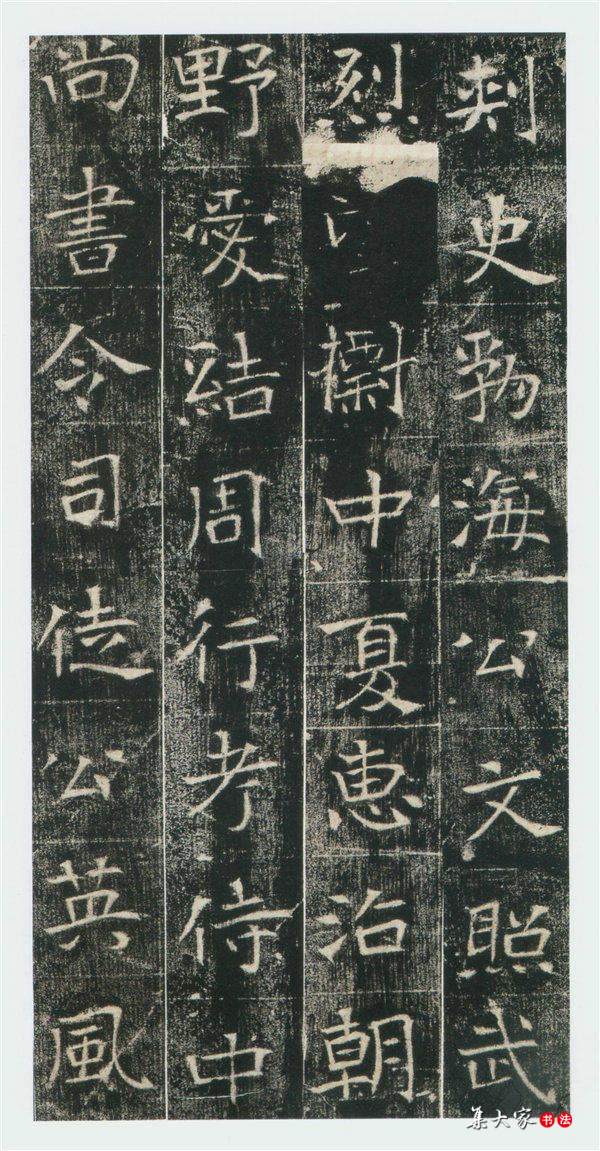 刺史勃海公文照武
烈中夏惠洽朝
野愛結周行考侍中
尚書令司徒公英風
集大家书法